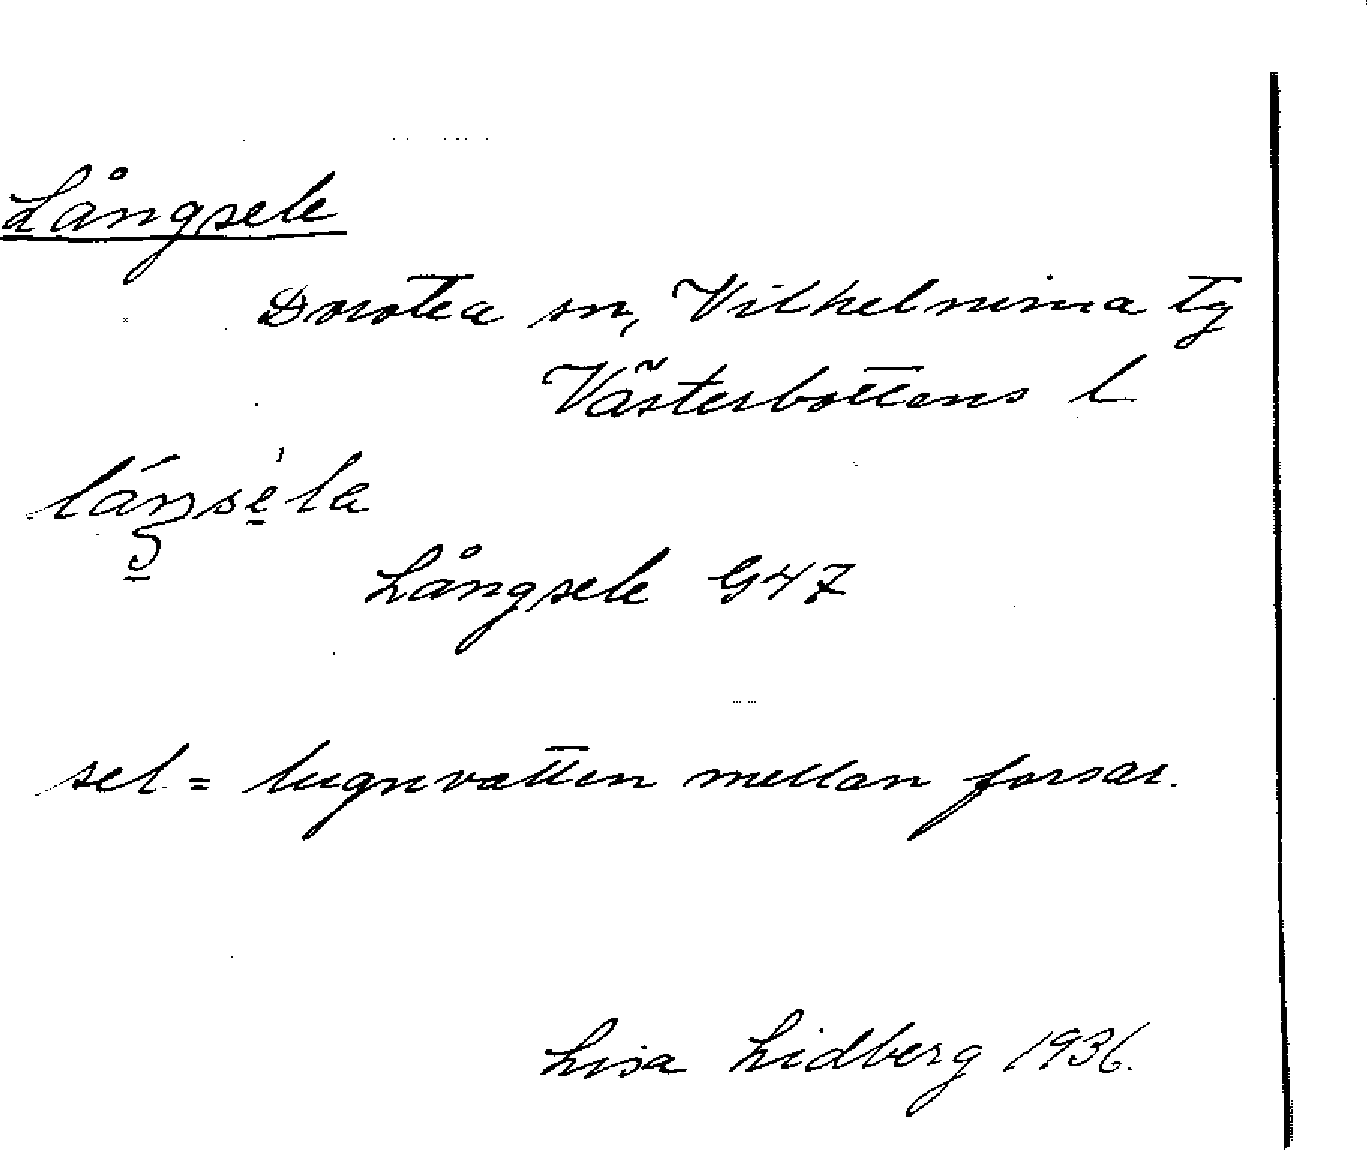 Långsele
Dorotea sn, Vilhelmina tg
Västerbottens l
Långsele G47
sel = lugnvatten mellan forsar.
Lisa Lidberg 1936.